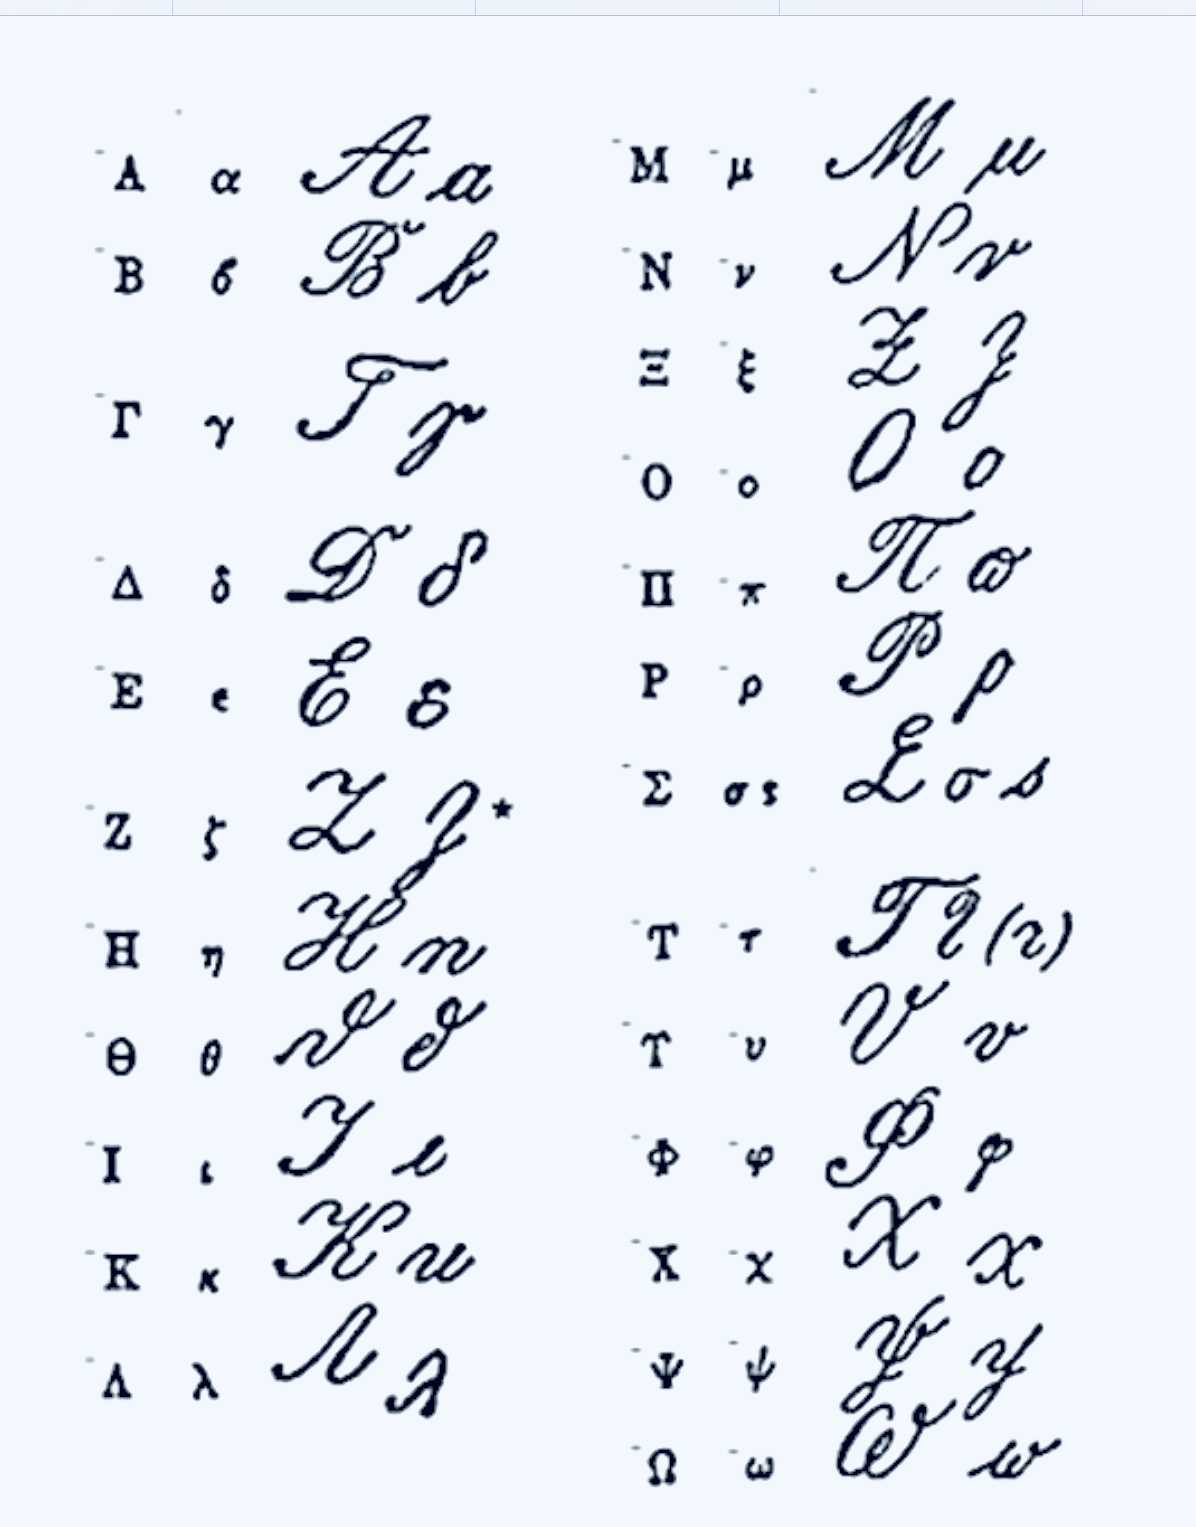 Α α 𝒜 𝒶
Β ϐ ℬ 𝒷
Γ γ Γ γ
Δ δ 𝒟 δ
Ε ε ℰ ε
Ζ ζ 𝒵 ζ*
Η η ℋ 𝓃
Θ θ ϑ ϑ
Ι ι ℐ ι
Κ κ 𝒦 𝓊
Λ λ Λ λ
Μ μ ℳ μ
Ν ν 𝒩 ν
Ξ ξ Ξ ξ
Ο ο 𝒪 ℴ
Π π Π ϖ
Ρ ρ 𝒫 ρ
Σ σ ς Σ σ ς
Τ τ Τ τ (τ)
Υ υ 𝒱 υ
Φ φ Φ φ
Χ χ 𝒳 𝓍
Ψ ψ Ψ ψ
Ω ω Ω ω